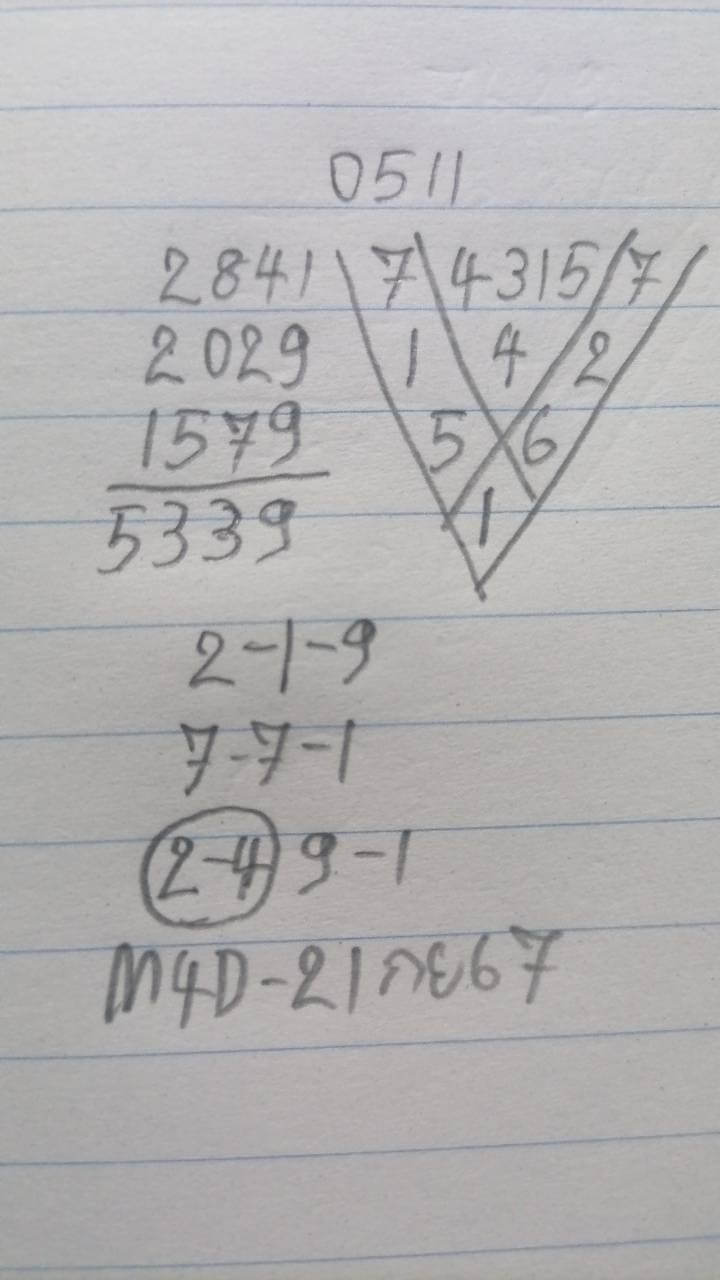 0511
2841 7 4315 7
2029 1 4 2
1579 5 6
5339 1
2-1-9
7-7-1
2-4 9-1
M4D-21กย67